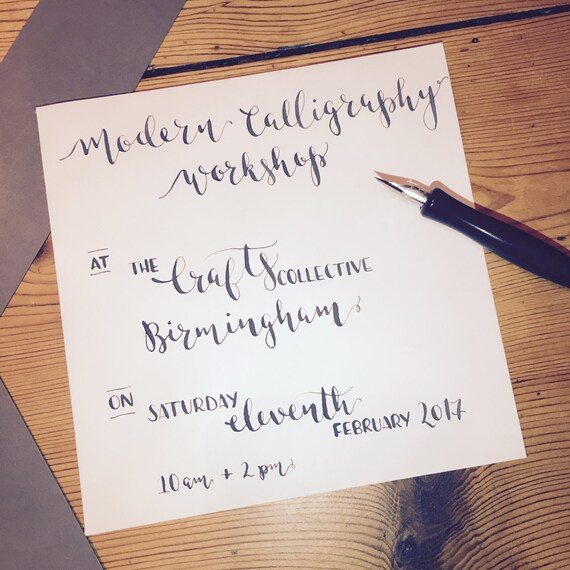 Modern Calligraphy
Workshop
AT THE Crafts COLLECTIVE
Birmingham
ON SATURDAY eleventh FEBRUARY 2017
10am + 2pm